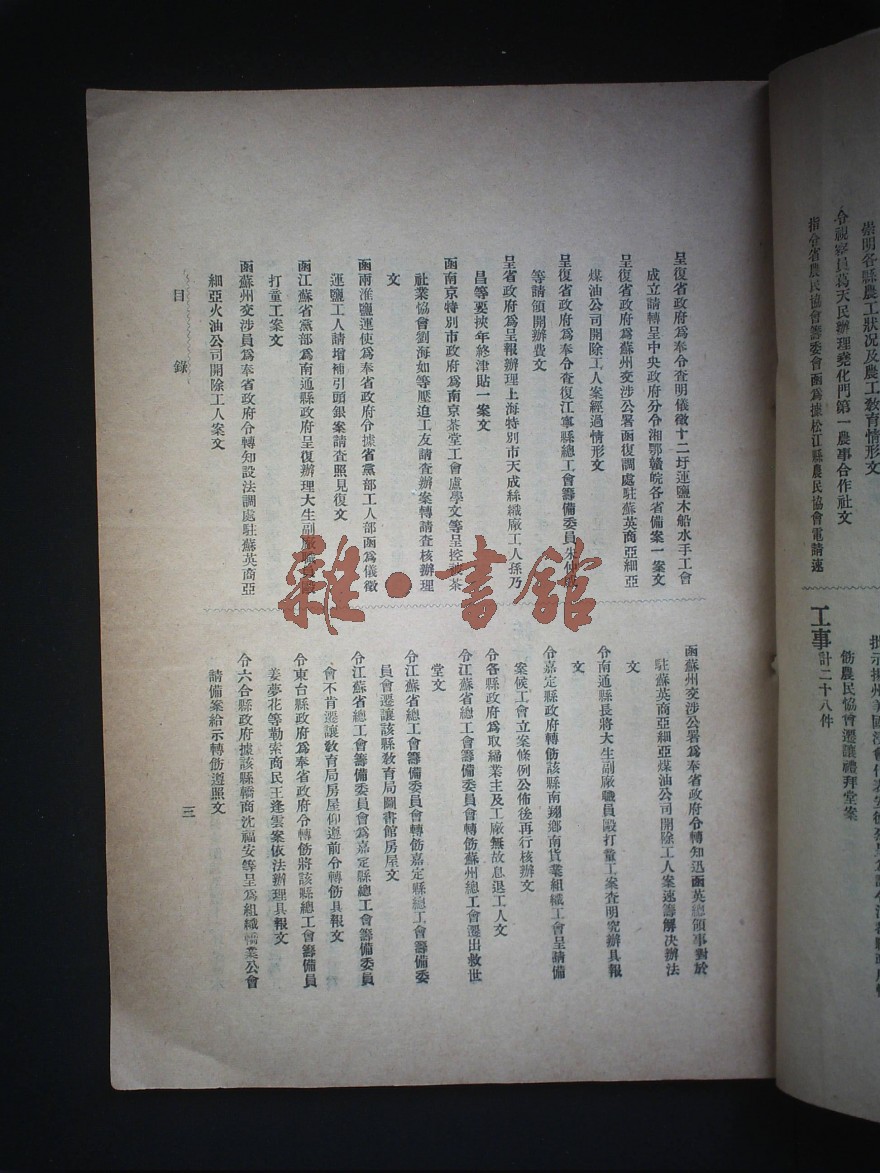 崇明各縣農工狀况及農工教育情形文
令視察員葛天民辦理堯化門第一農事合作社文
指令省農民協會籌委會函爲據松江縣農民協會電請速
飭農民協會遷讓禮拜堂案
工事計二十八件
呈復省政府爲奉令查明儀徵十二圩運鹽木船水手工會
成立請轉呈中央政府分令湘鄂贛皖各省備案一案文
呈復省政府爲蘇州交涉公署函復調處駐蘇英商亞細亞
煤油公司開除工人案經過情形文
呈復省政府爲奉令查復江寧縣總工會籌備委員朱仲
等請頒開辦費文
呈省政府爲呈報辦理上海特別市天成絲織廠工人孫乃
昌等要挾年終津貼一案文
函南京特別市政府爲南京茶堂工會盧學文等呈控被茶
社業協會劉海如等壓迫工友請查辦案轉請查核辦理
文
函兩淮鹽運使爲奉省政府令據省黨部工人部函爲儀徵
運鹽工人請增補引頭銀案請查照見復文
函江蘇省黨部爲南通縣政府呈復辦理大生副廠職員
打童工案文
函蘇州交涉員爲奉省政府令轉知設法調處駐蘇英商亞
細亞火油公司開除工人案文
函蘇州交涉公署爲奉省政府令轉知迅函英總領事對於
駐蘇英商亞細亞煤油公司開除工人案速籌解决辦法
文
令南通縣長將大生副廠職員毆打童工案查明究辦具報
文
令嘉定縣政府轉飭該縣南翔鄉南貨業組織工會呈請備
案候工會立案條例公佈後再行核辦文
令各縣政府爲取締業主及工廠無故息退工人文
令江蘇省總工會籌備委員會轉飭蘇州總工會遷出救世
堂文
令江蘇省總工會籌備委員會轉飭嘉定縣總工會籌備委
員會遷讓該縣教育局圖書館房屋文
令江蘇省總工會籌備委員會爲嘉定縣總工會籌備委員
會不肯遷讓教育局房屋仰遵前令轉飭具報文
令東台縣政府爲奉省政府令轉飭將該縣總工會籌備員
姜夢花等勒索商民王逢雲案依法辦理具報文
令六合縣政府據該縣轎商沈福安等呈爲組織轎業公會
請備案給示轉飭遵照文
目錄
三
雜·書館